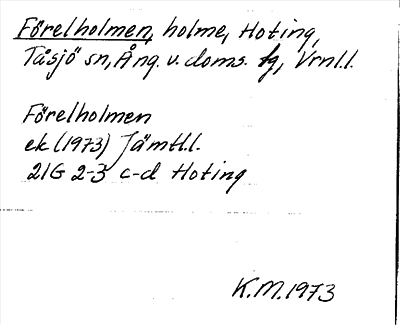 Förelholmen, holme, Hoting,
Tåsjö sn, Ång. v. doms. tg, Vrnl.l.
Förelholmen
ek (1973) Jämtl.l.
21G 2-3 c-d Hoting
K.M. 1973